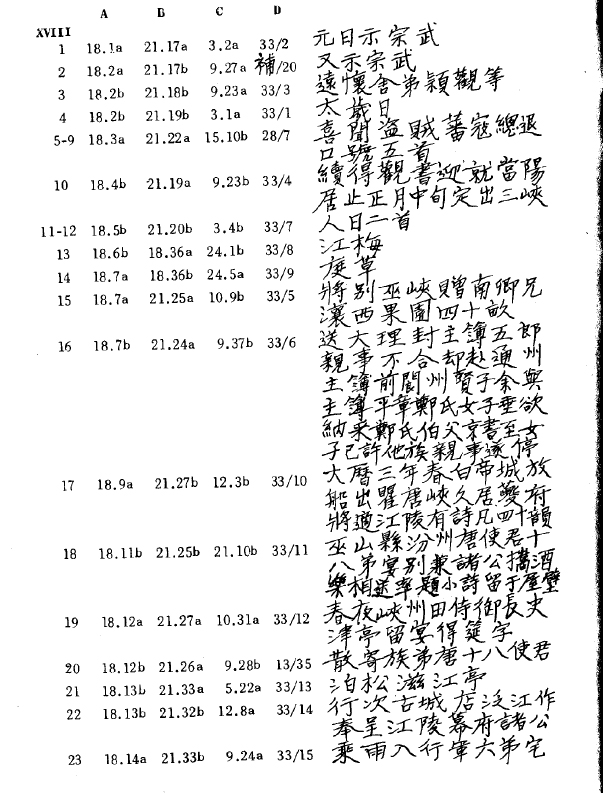 A B C D
XVIII
1 18.1a 21.17a 3.2a 33/2 元日示宗武
2 18.2a 21.17b 9.27a 補/20 又示宗武
3 18.2b 21.18b 9.23a 33/3 遠懷舍弟穎觀等
4 18.2b 21.19b 3.1a 33/1 太歲日
5-9 18.3a 21.22a 15.10b 28/7 喜聞盜賊蕃寇總退
口號五首
10 18.4b 21.19a 9.23b 33/4 續得觀書迎就當陽
居止正月中旬定出三峽
11-12 18.5b 21.20b 3.4b 33/7 人日二首
13 18.6b 18.36a 24.1b 33/8 江梅
14 18.7a 18.36b 24.5a 33/9 庭草
15 18.7a 21.25a 10.9b 33/5 將別巫峽贈南卿兄
瀼西果園四十畝
16 18.7b 21.24a 9.37b 33/6 送大理封主簿五郎
親事不合却赴通州
主簿前閬州賢子余與
主簿平章鄭氏女子垂欲
納采鄭氏伯父京書至女
子已許他族親事遂停
17 18.9a 21.27b 12.3b 33/10 大曆三年春白帝城放
船出瞿唐峽久居夔府
將適江陵有詩凡四十韻
18 18.11b 21.25b 21.10b 33/11 巫山縣汾州唐使君十
八弟宴別兼諸公攜酒
樂相送率題小詩留于屋壁
19 18.12a 21.27a 10.31a 33/12 春夜峽州田侍御長史
津亭留宴得筵字
20 18.12b 21.26a 9.28b 13/35 散寄族弟唐十八使君
21 18.13b 21.33a 5.22a 33/13 泊松滋江亭
22 18.13b 21.32b 12.8a 33/14 行次古城店泛江作
奉呈江陵幕府諸公
23 18.14a 21.33b 9.24a 33/15 乘雨入行軍六弟宅